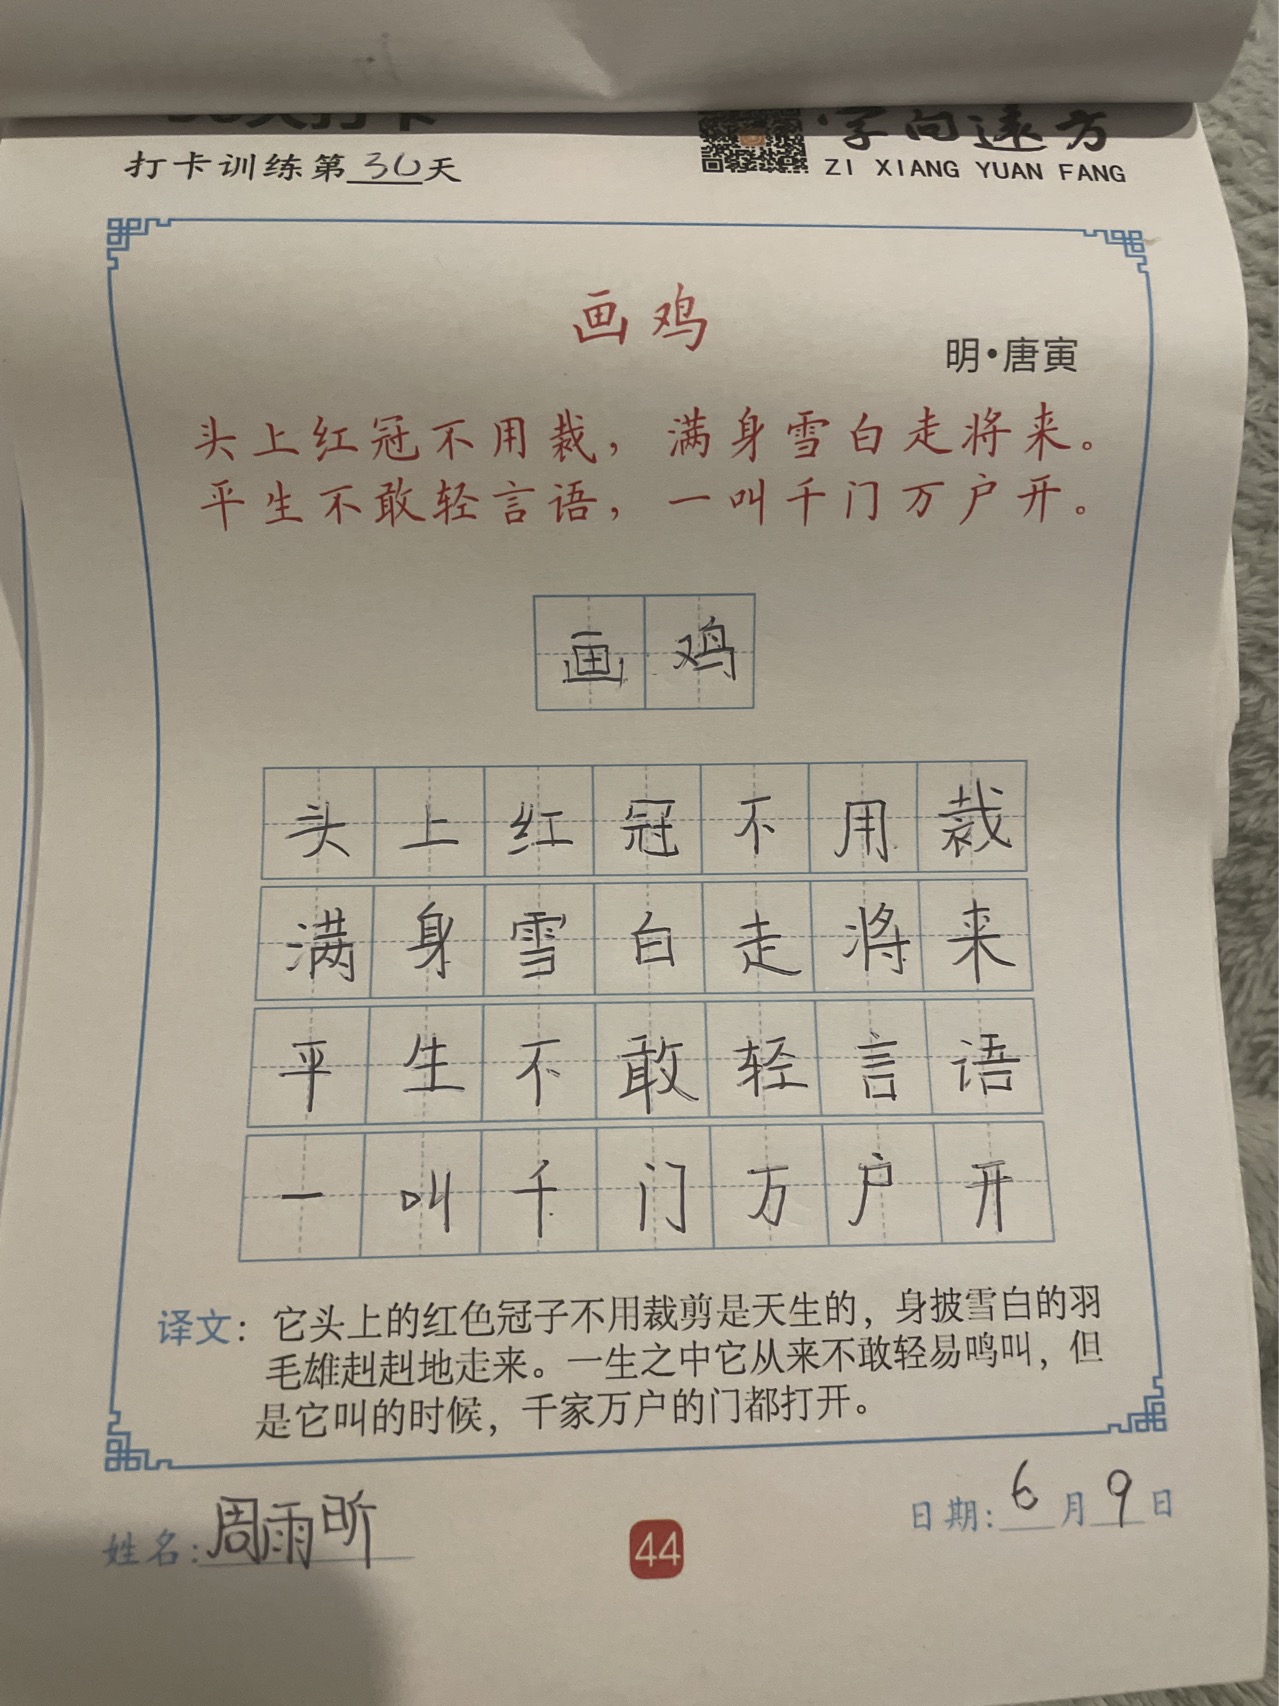 打卡训练第30天
字向远方
ZI XIANG YUAN FANG
画鸡
明·唐寅
头上红冠不用裁，满身雪白走将来。
平生不敢轻言语，一叫千门万户开。
画鸡
头上红冠不用裁
满身雪白走将来
平生不敢轻言语
一叫千门万户开
译文：它头上的红色冠子不用裁剪是天生的，身披雪白的羽
毛雄赳赳地走来。一生之中它从来不敢轻易鸣叫，但
是它叫的时候，千家万户的门都打开。
姓名：周雨昕
44
日期：6月9日